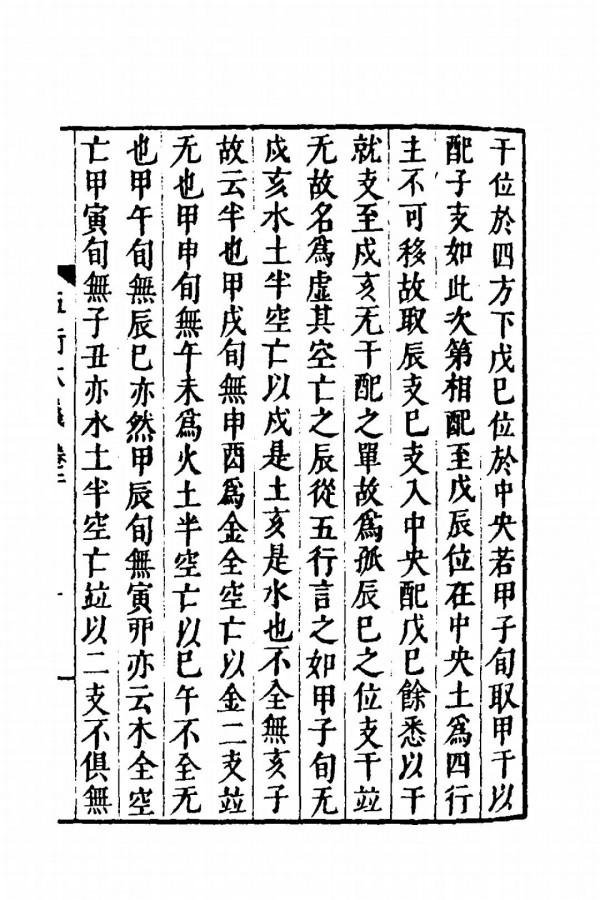 干位於四方下戊巳位於中央若甲子旬取甲干以
配子支如此次第相配至戊辰位在中央土為四行
主不可移故取辰支巳支入中央配戊巳餘悉以干
就支至戍亥无干配之單故為孤辰巳之位支干竝
无故名為虛其空亡之辰從五行言之如甲子旬无
戍亥水土半空亡以戍是土亥是水也不全無亥子
故云半也甲戌旬無申酉為金全空亡以金二支竝
无也甲申旬無午未為火土半空亡以巳午不全无
也甲午旬無辰巳亦然甲辰旬無寅夘亦云木全空
亡甲寅旬無子丑亦水土半空亡竝以二支不俱無
五行大義 卷二